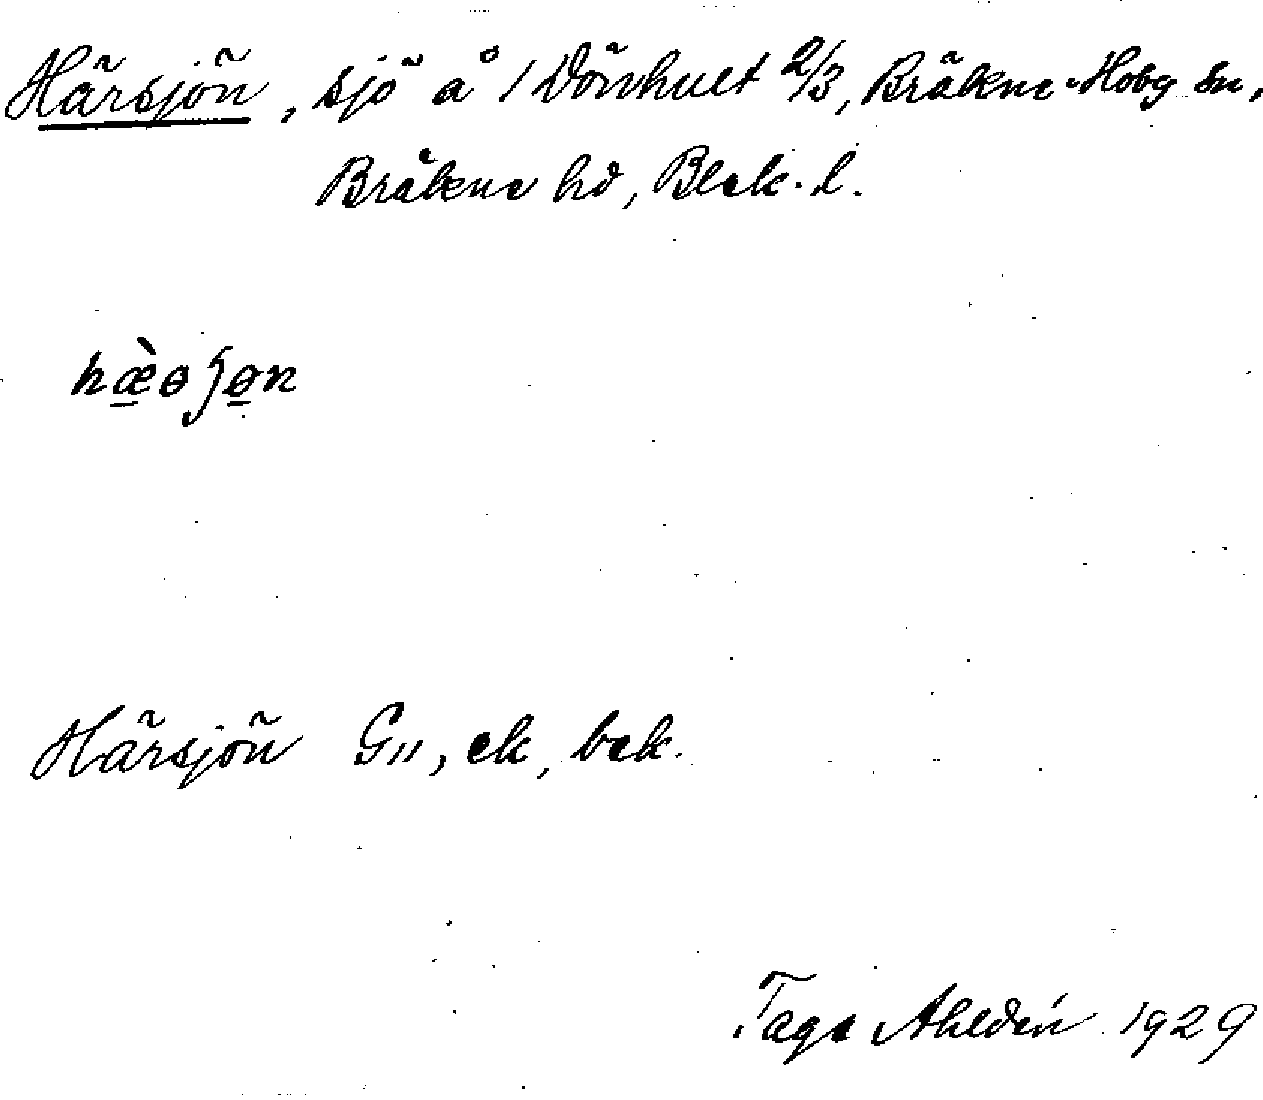 Härsjön, sjö å / Dönhult 2/3, Bräkne-Hoby sn,
Bräkne hd, Blek. l.
Härsjön G11, ek, bek.
Tage Ahldén 1929